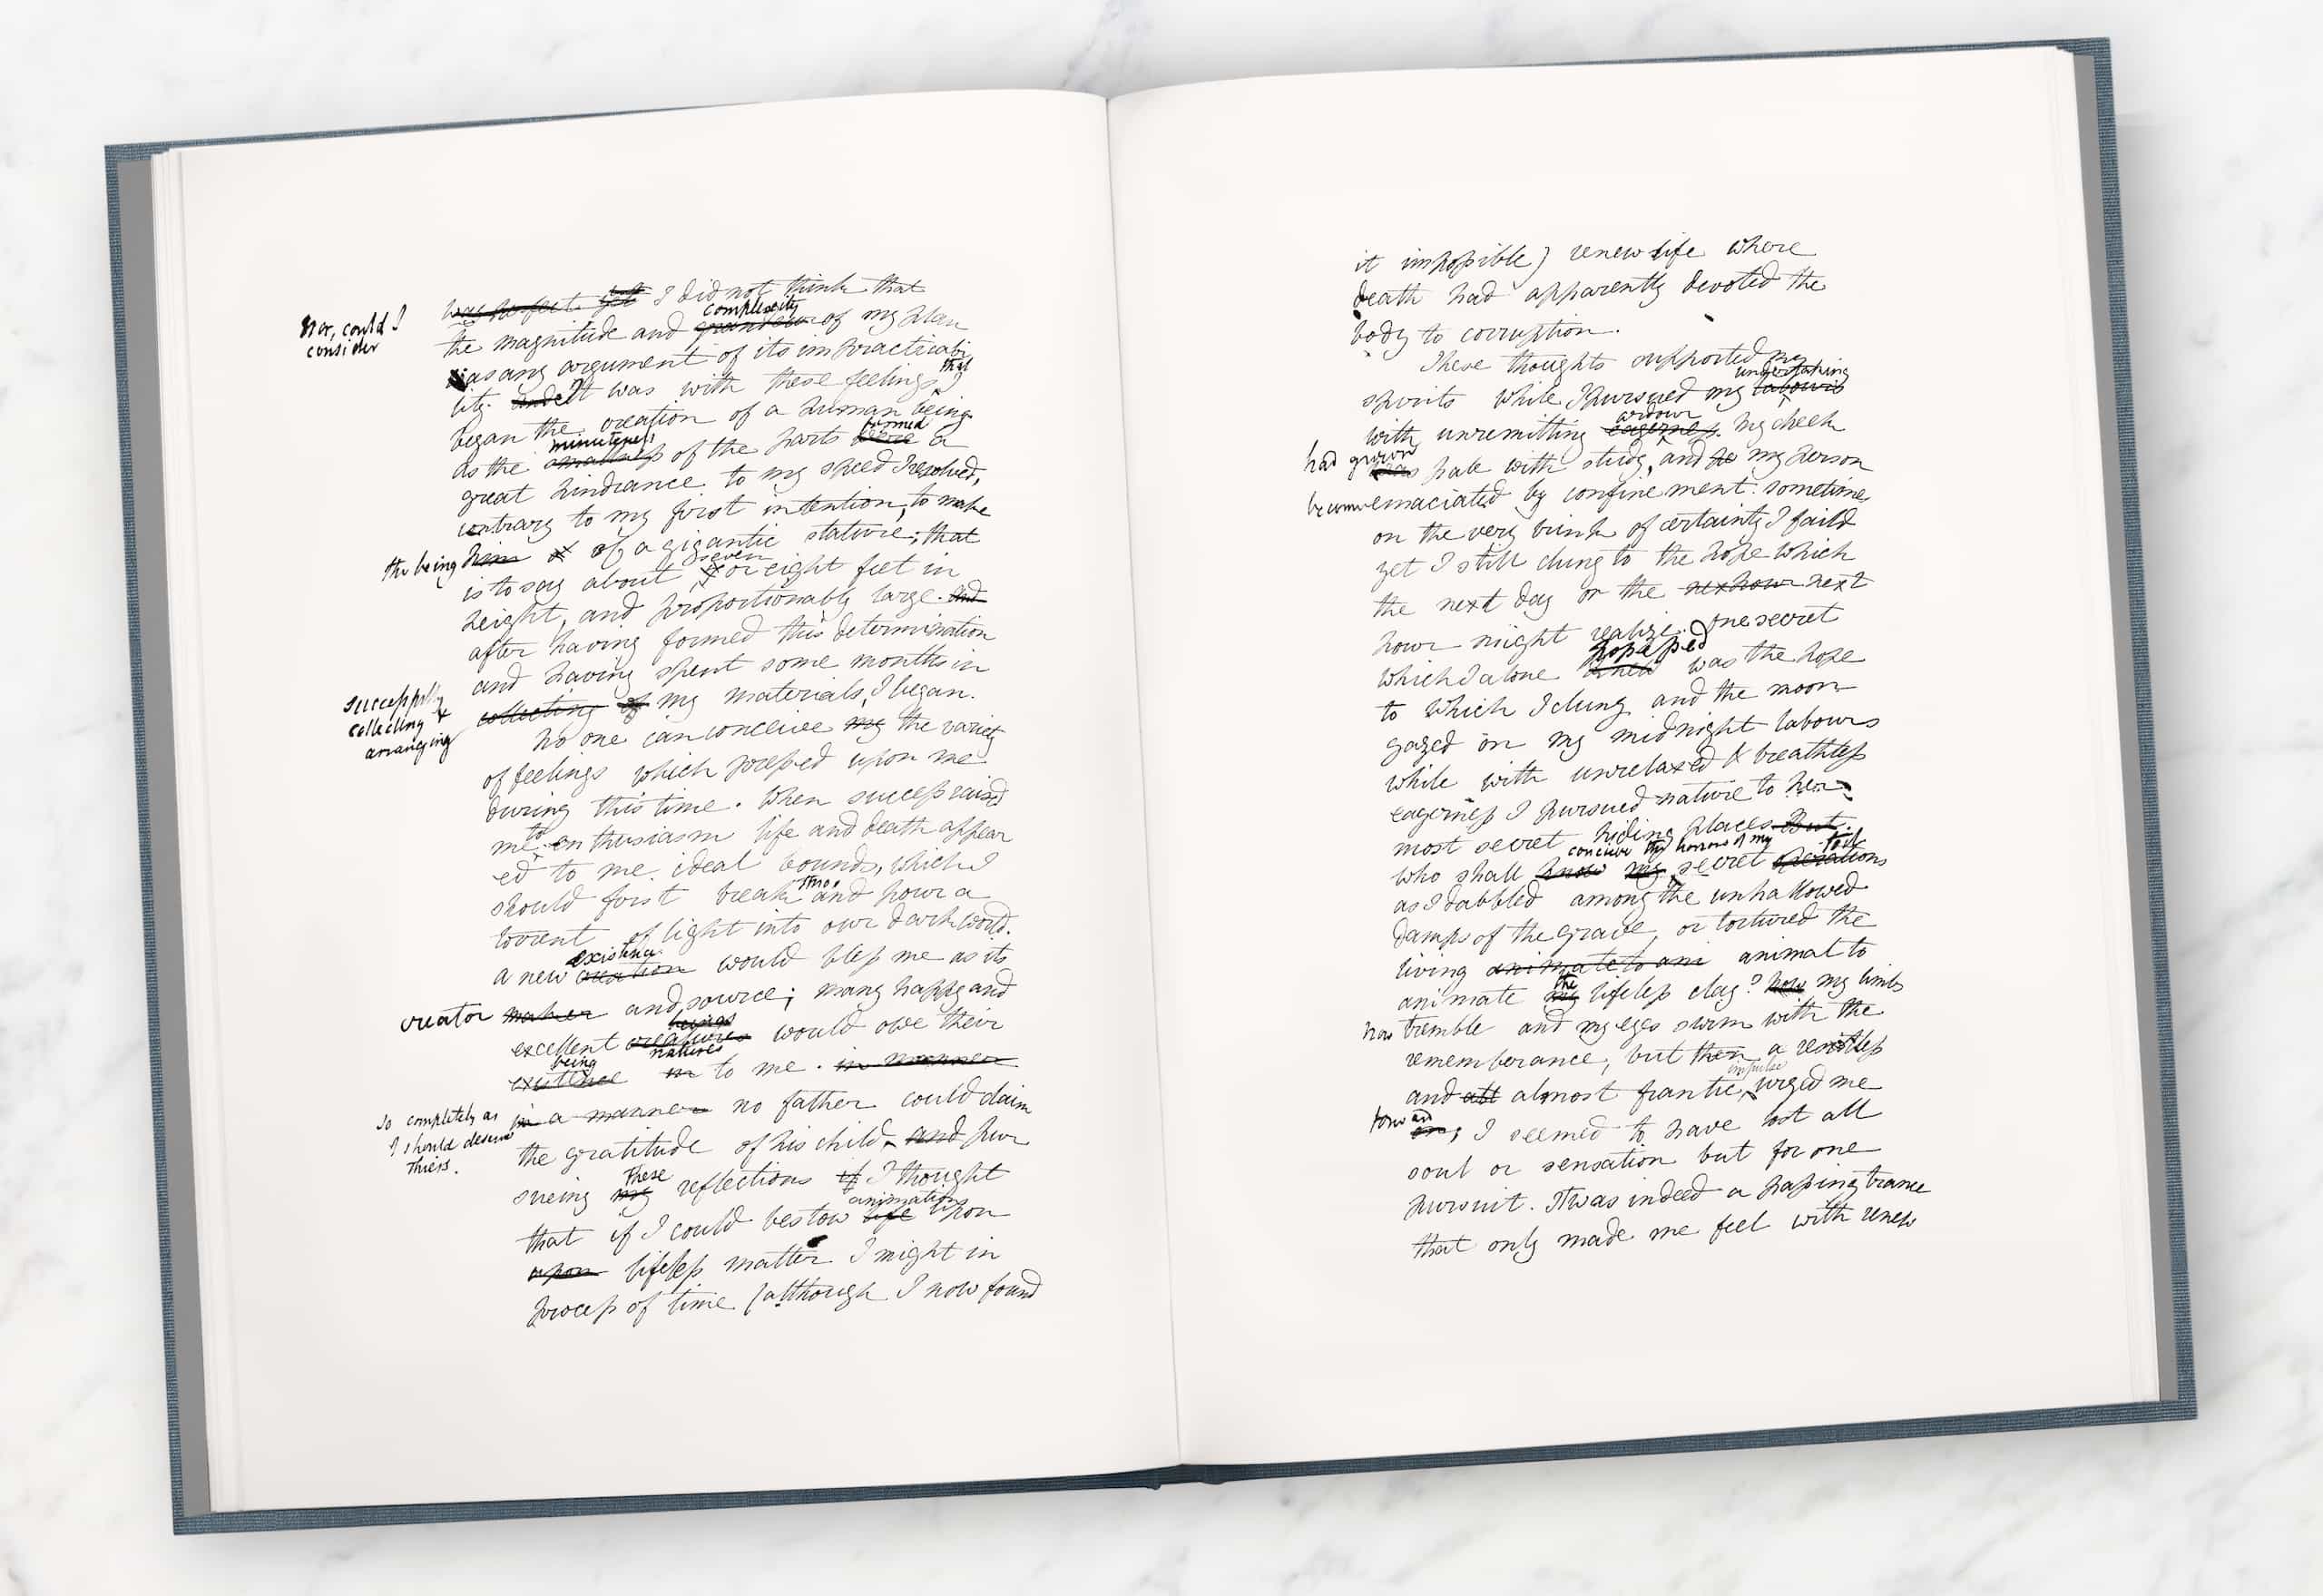 Nor, could I
consider
was perfect yet but I did not think that
complexity
the magnitude and grandeur of my plan
as any argument of its impracticabi
that
lity. and It was with these feelings I
began the creation of a human being.
minuteness formed
As the smallness of the parts were a
great hindrance to my speed I resolved,
contrary to my first intention, to make
the being him of a gigantic stature; that
seven
is to say about or eight feet in
height, and proportionably large. and
after having formed this determination
and having spent some months in
successfully
collecting &
arranging
collecting of my materials, I began.
No one can conceive my the variety
of feelings which pressed upon me
during this time. When success raised
to
me enthusiasm life and death appear
ed to me ideal bounds, which I
should first break thro' and pour a
torrent of light into our dark world.
existence
a new creation would bless me as its
creator maker and source; many happy and
beings
excellent creatures would owe their
being natures
existence in to me. in manner
so completely as
I should deserve
theirs.
in a manner no father could claim
the gratitude of his child, and pur
These
sueing my reflections if I thought
animation
that if I could bestow life upon
upon lifeless matter I might in
process of time (although I now found
it impossible) renew life where
death had apparently devoted the
body to corruption.
These thoughts supported my
undertaking
spirits while I pursued my labours
ardour
with unremitting eagerness. My cheek
had grown
was pale with study, and my person
become emaciated by confinement. sometimes
on the very brink of certainty I faild
yet I still clung to the hope which
the next day or the nex hour next
hour might realize. One secret
hope possessed
which I alone was the hope
to which I clung and the moon
gazed on my midnight labours
while with unrelaxed & breathless
eagerness I pursued nature to her
most secret hiding places But
conceive the horrors of my toil
who shall know my secret operations
as I dabbled among the unhallowed
damps of the grave, or tortured the
living animate to ani animal to
the
animate my lifeless clay? now my limbs
now tremble and my eyes swim with the
rememberance; but then a restless
impulse
and all almost frantic, urged me
forward
on; I seemed to have lost all
soul or sensation but for one
pursuit. It was indeed a passing trance
that only made me feel with renew